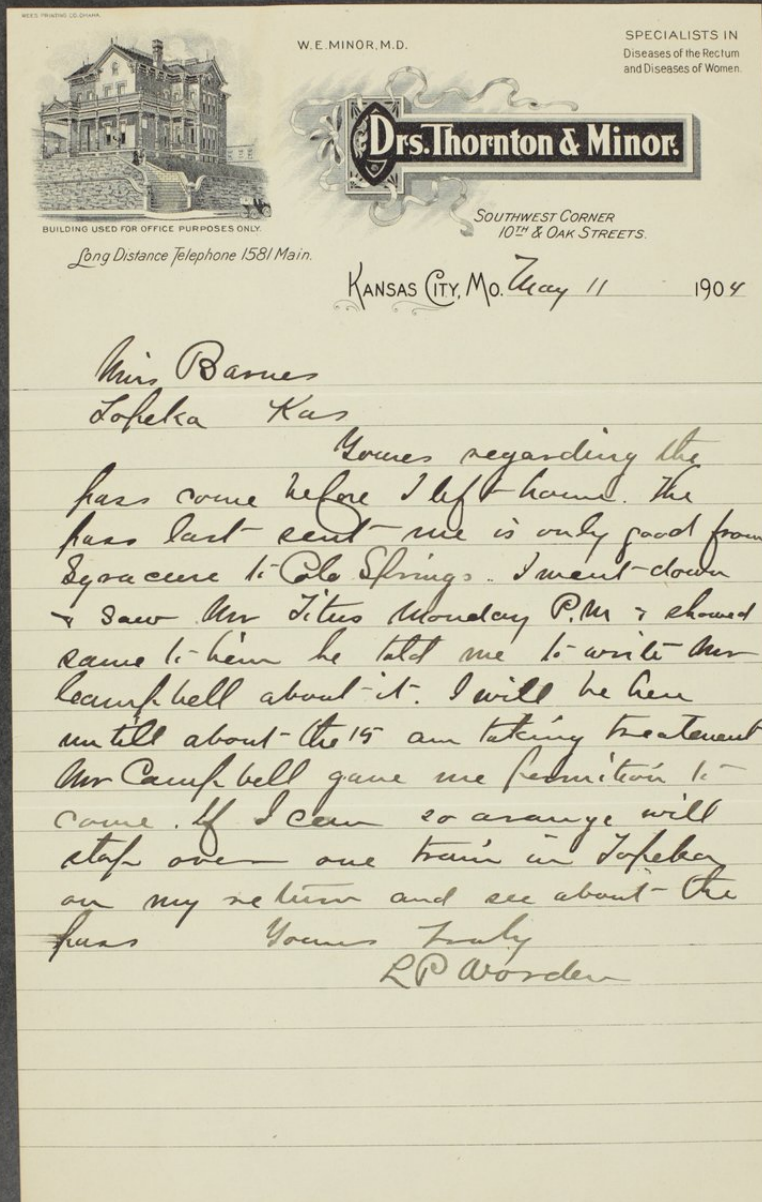 W.E. MINOR, M.D.
SPECIALISTS IN
Diseases of the Rectum
and Diseases of Women.
Drs. Thornton & Minor.
SOUTHWEST CORNER
10TH & OAK STREETS.
BUILDING USED FOR OFFICE PURPOSES ONLY.
Long Distance Telephone 1581 Main.
KANSAS CITY, MO. May 11 1904
Miss Barnes
Topeka Kas
Youres regarding the
pass come before I left home. The
pass last sent me is only good from
Syracuse to Colo Springs. I went down
& saw Mr Titus Monday P.M & showed
same to him he told me to write Mr
Campbell about it. I will be here
untill about the 15 am taking treatment
Mr Campbell gave me permition to
come. If I can so arange will
stop over one train in Topeka
on my return and see about the
pass Youres Truly
L P Worden